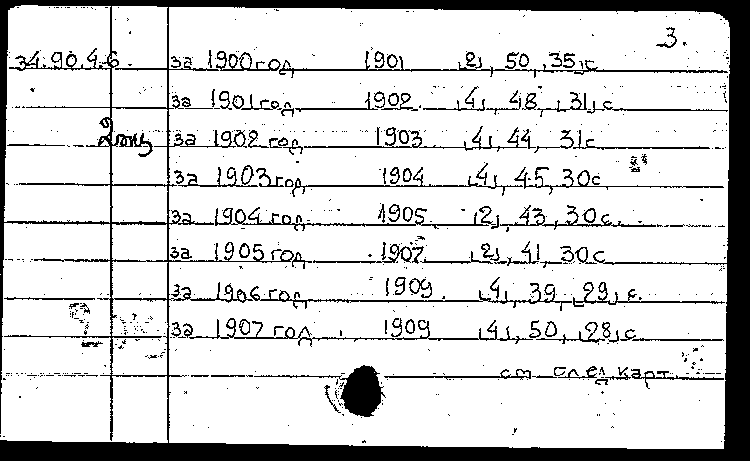 3.
34.90.4.6. за 1900 год 1901 [2], 50, [35] с.
за 1901 год 1902. [4], 48, [31] с.
за 1902 год 1903 [4], 44, 31 с
за 1903 год 1904 [4], 45, 30 с.
за 1904 год 1905. [2], 43, 30 с.
за 1905 год 1907. [2], 41, 30 с
за 1906 год 1909. [4], 39, [29] с.
за 1907 год 1909 [4], 50, [28] с
см след карт.